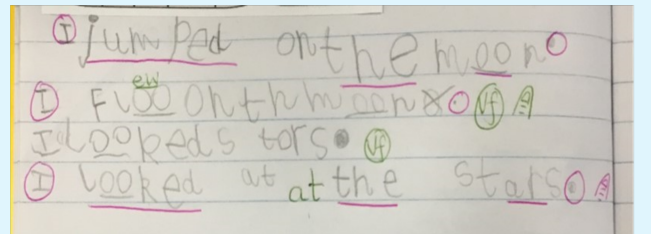 I jumped on the moon.
I Floo ew on th moon x. Vf A
I Lookeds tors. Vf
I looked at at the stars. A